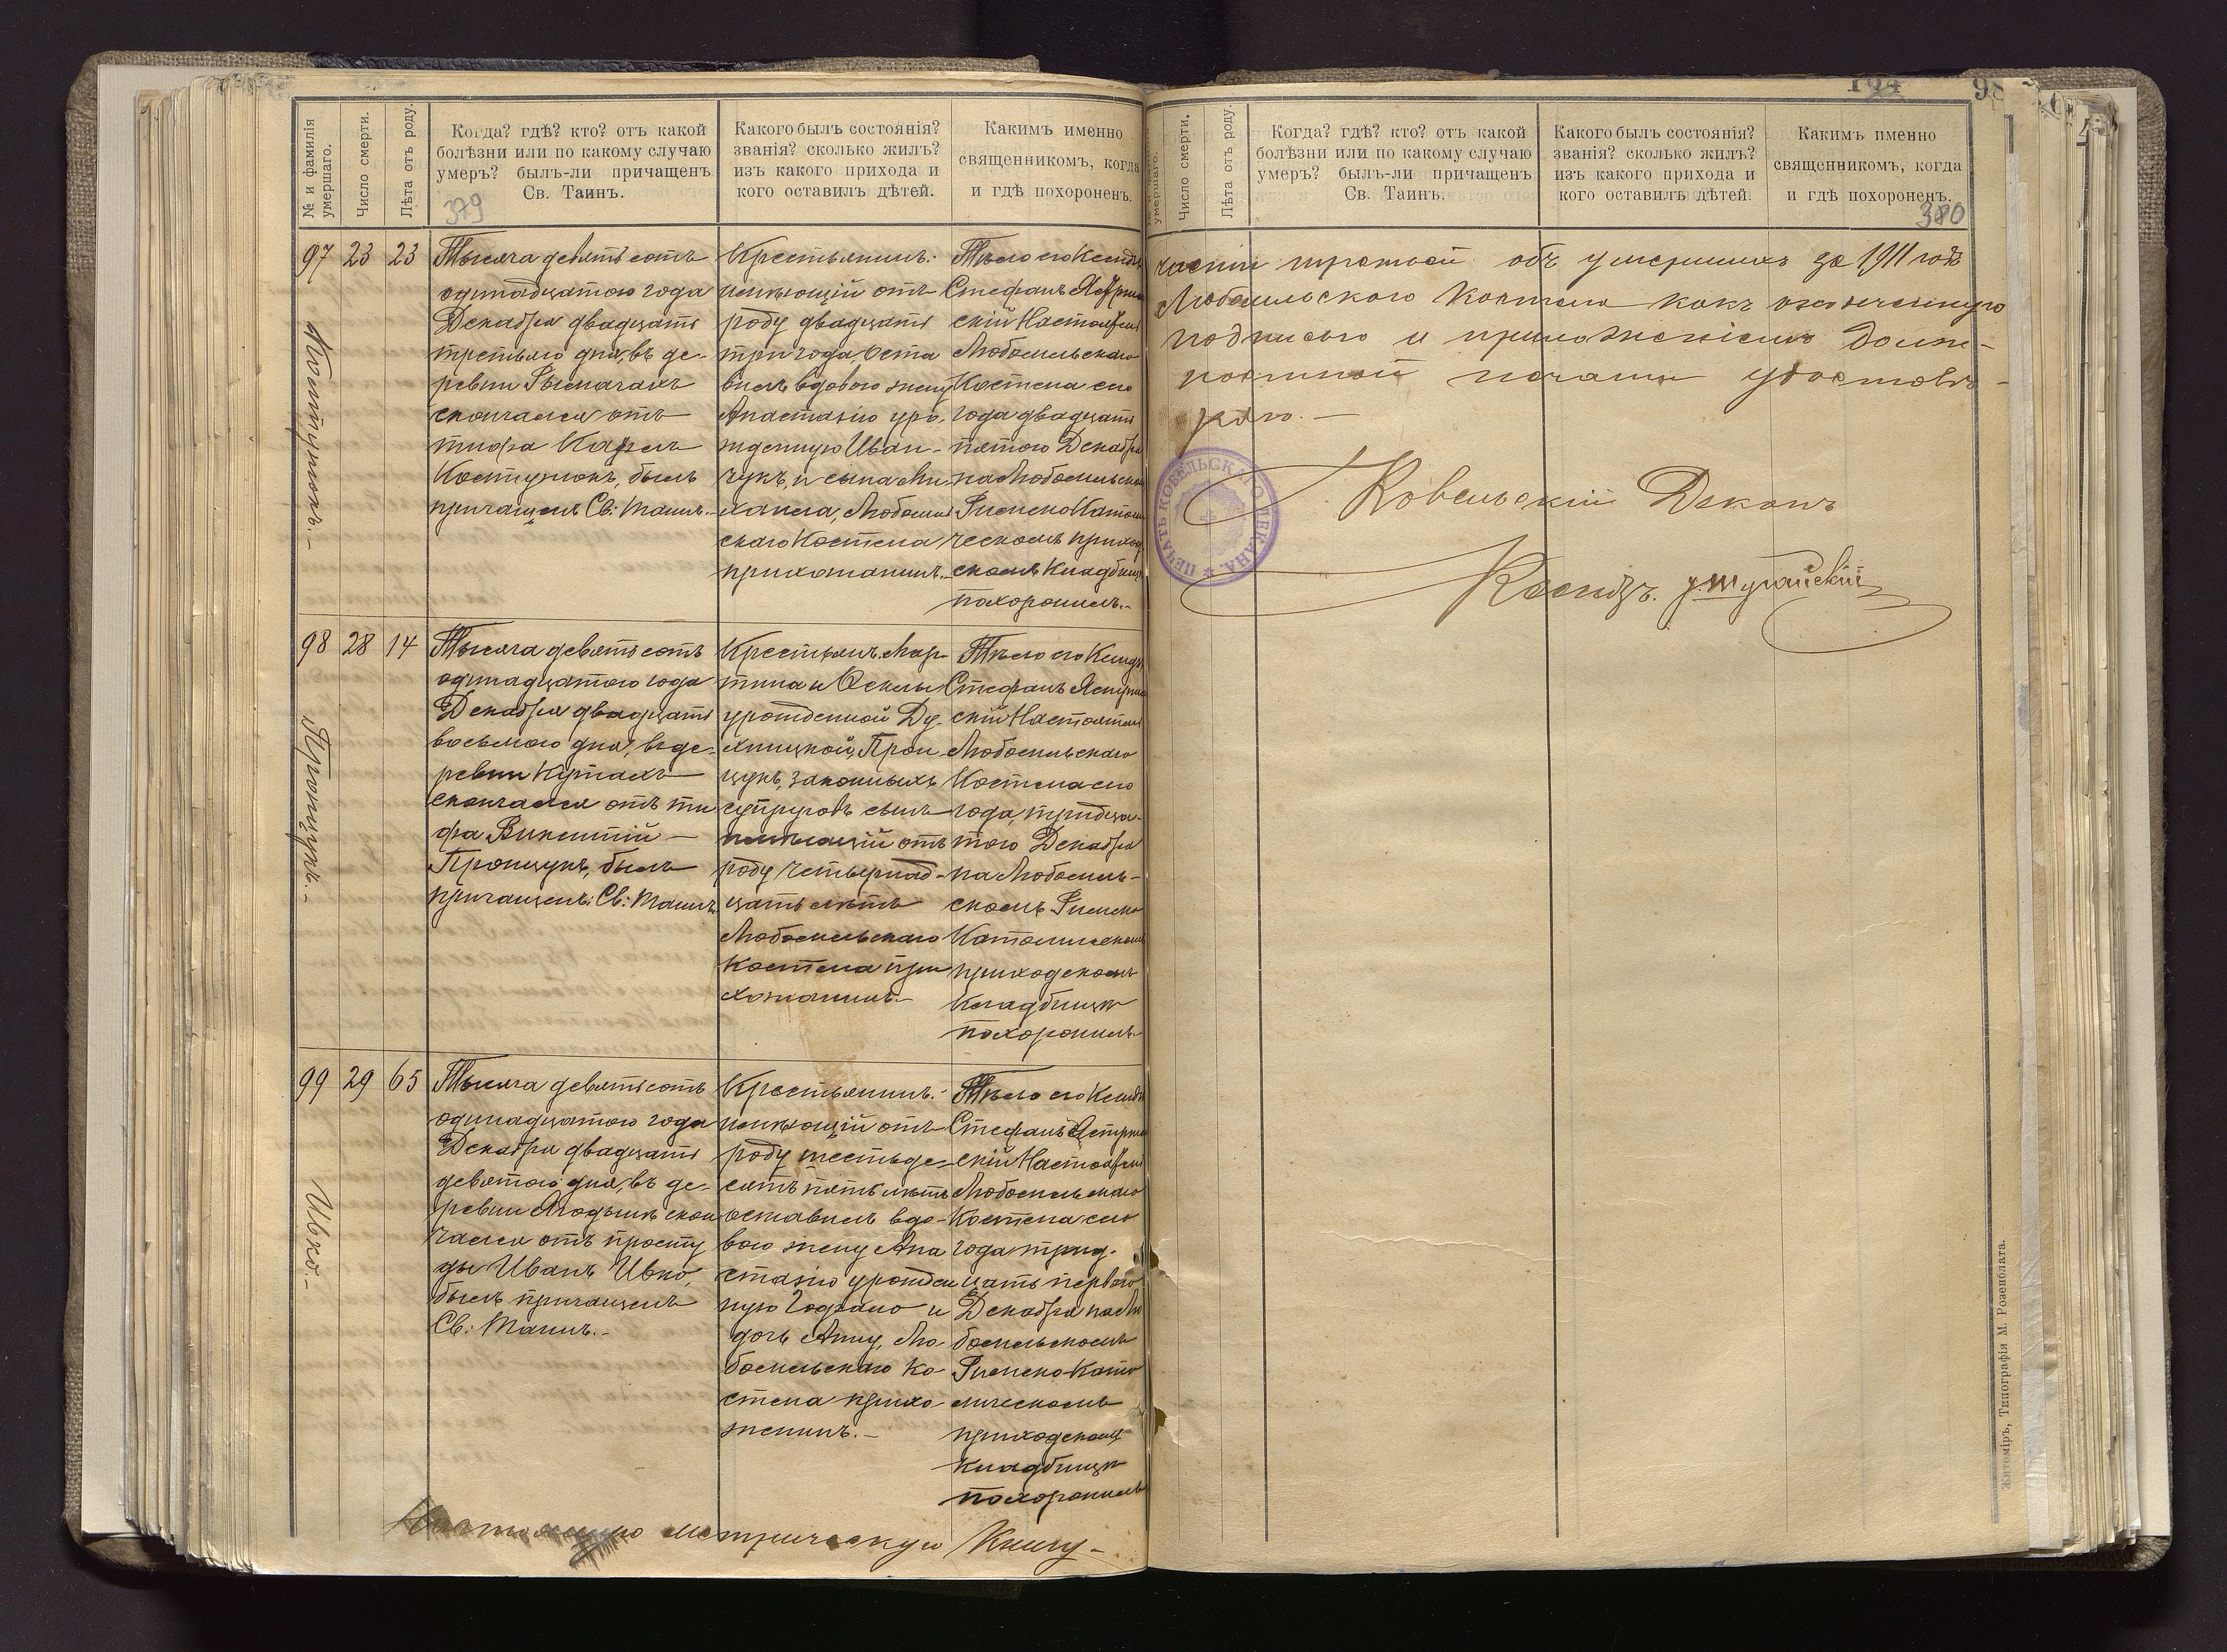 № и фамилія умершаго.
Число смерти.
Лѣта отъ роду.
Когда? гдѣ? кто? отъ какой
болѣзни или по какому случаю
умеръ? былъ-ли причащенъ
Св. Таинъ.
379
Какого былъ состоянія?
званія? сколько жилъ?
изъ какого прихода и
кого оставилъ дѣтей.
Какимъ именно
священникомъ, когда
и гдѣ похороненъ.
97
23
23
Костунюкъ.-
Тысяча девятьсотъ
одинадцатого года
Декабря двадцать
третьяго дня, въ де-
ревни Рымачахъ
скончался отъ
тифа Карлъ
Костунюкъ, былъ
причащенъ Св: Таинъ.-
Крестьянинъ.
имѣющій отъ
роду двадцать
три года, оста
вилъ вдовою жену
Анастазію уро-
жденную Иван-
чукъ, и сына Ми-
хаила, Любомль
скаго Костела
прихожанинъ.-
Тѣло его Ксендзъ
Стефанъ Ястрже
скій Настоятель
Любомльскаго
Костела сего
года двадцать
пятого Декабря
на Любомльском
Римско Католи
ческомъ приход
скомъ Кладбищѣ
похоронилъ.-
98
28
14
Пронцукъ.-
Тысяча девятьсотъ
одинадцатого года
Декабря двадцать
восьмого дня, въ де-
ревни Кутахъ
скончался отъ ти
фа Викентій
Пронцукъ, былъ
причащенъ: Св: Таинъ.
Крестьянъ. Мар-
тина и Феклы
урожденной Ду-
хницкой, Прон
цукъ, законныхъ
супруговъ сынъ
имѣющій отъ
роду четырнад-
цать лѣтъ
Любомльскаго
Костела при
хожанинъ.-
Тѣло его Ксендзъ
Стефанъ Ястрже
скій Настоятель
Любомльскаго
Костела сего
года, тридца-
того Декабря
на Любомль-
скомъ Римско
Католическом
приходскомъ
Кладбищѣ
похоронилъ
99
29
65
Ивко.-
Тысяча девятьсотъ
одинадцатого года
Декабря двадцать
девятого дня, въ де-
ревни Ягодынѣ скон
чался отъ просту
ды Иванъ Ивко,
былъ причащенъ
Св: Таинъ.-
Крестьянинъ.
имѣющій отъ
роду шестьде-
сятъ пять лѣтъ
оставилъ вдо-
вою жену Ана
стазію урожден
ную и
дочь Анну, Лю-
бомльскаго Ко-
стела прихо
женинъ.-
Тѣло его Ксендзъ
Стефанъ Ястрже
скій Настоятель
Любомльскаго
Костела сего
года трид-
цать первого
Декабря на Лю
бомльскомъ
Римско-Като
лическомъ
приходскомъ
Кладбищѣ
похоронилъ
Настоящую метрическую Книгу-
умершаго.
Число смерти.
Лѣта отъ роду.
Когда? гдѣ? кто? отъ какой
болѣзни или по какому случаю
умеръ? былъ-ли причащенъ
Св. Таинъ.
Какого былъ состоянія?
званія? сколько жилъ?
изъ какого прихода и
кого оставилъ дѣтей.
Какимъ именно
священникомъ, когда
и гдѣ похороненъ.
380
части третьей объ умершихъ за 1911 годъ
Любомльского Костела какъ оконченную
подписью и приложеніемъ долж-
ностной печати удостовѣ-
ряю.-
ПЕЧАТЬ КОВЕЛЬСКАГО ДЕКАНА.
Ковельскій Деканъ
Ксендзъ.
Житоміръ, Типографія М. Розенблата.